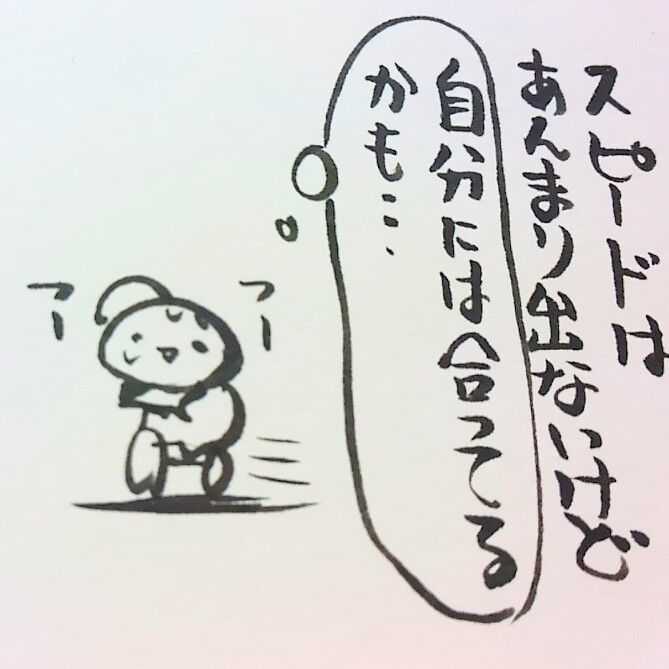 スピードは
あんまり出ないけど
自分には合ってる
かも…
つー
つー